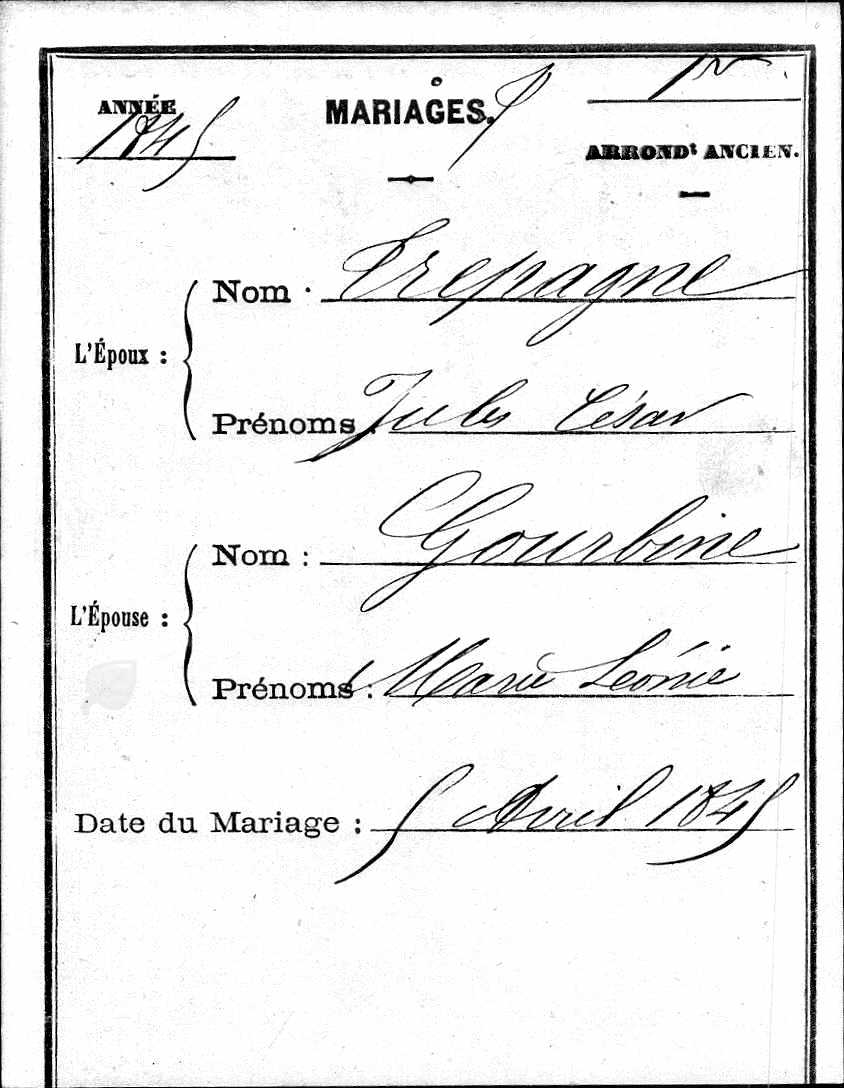 ANNÉE
1845
MARIAGES.
1er
ARRONDt ANCIEN.
L'Époux :
Nom : Trepagne
Prénoms : Jules César
L'Épouse :
Nom : Gourbine
Prénoms : Marie Léonie
Date du Mariage : 5 Avril 1845